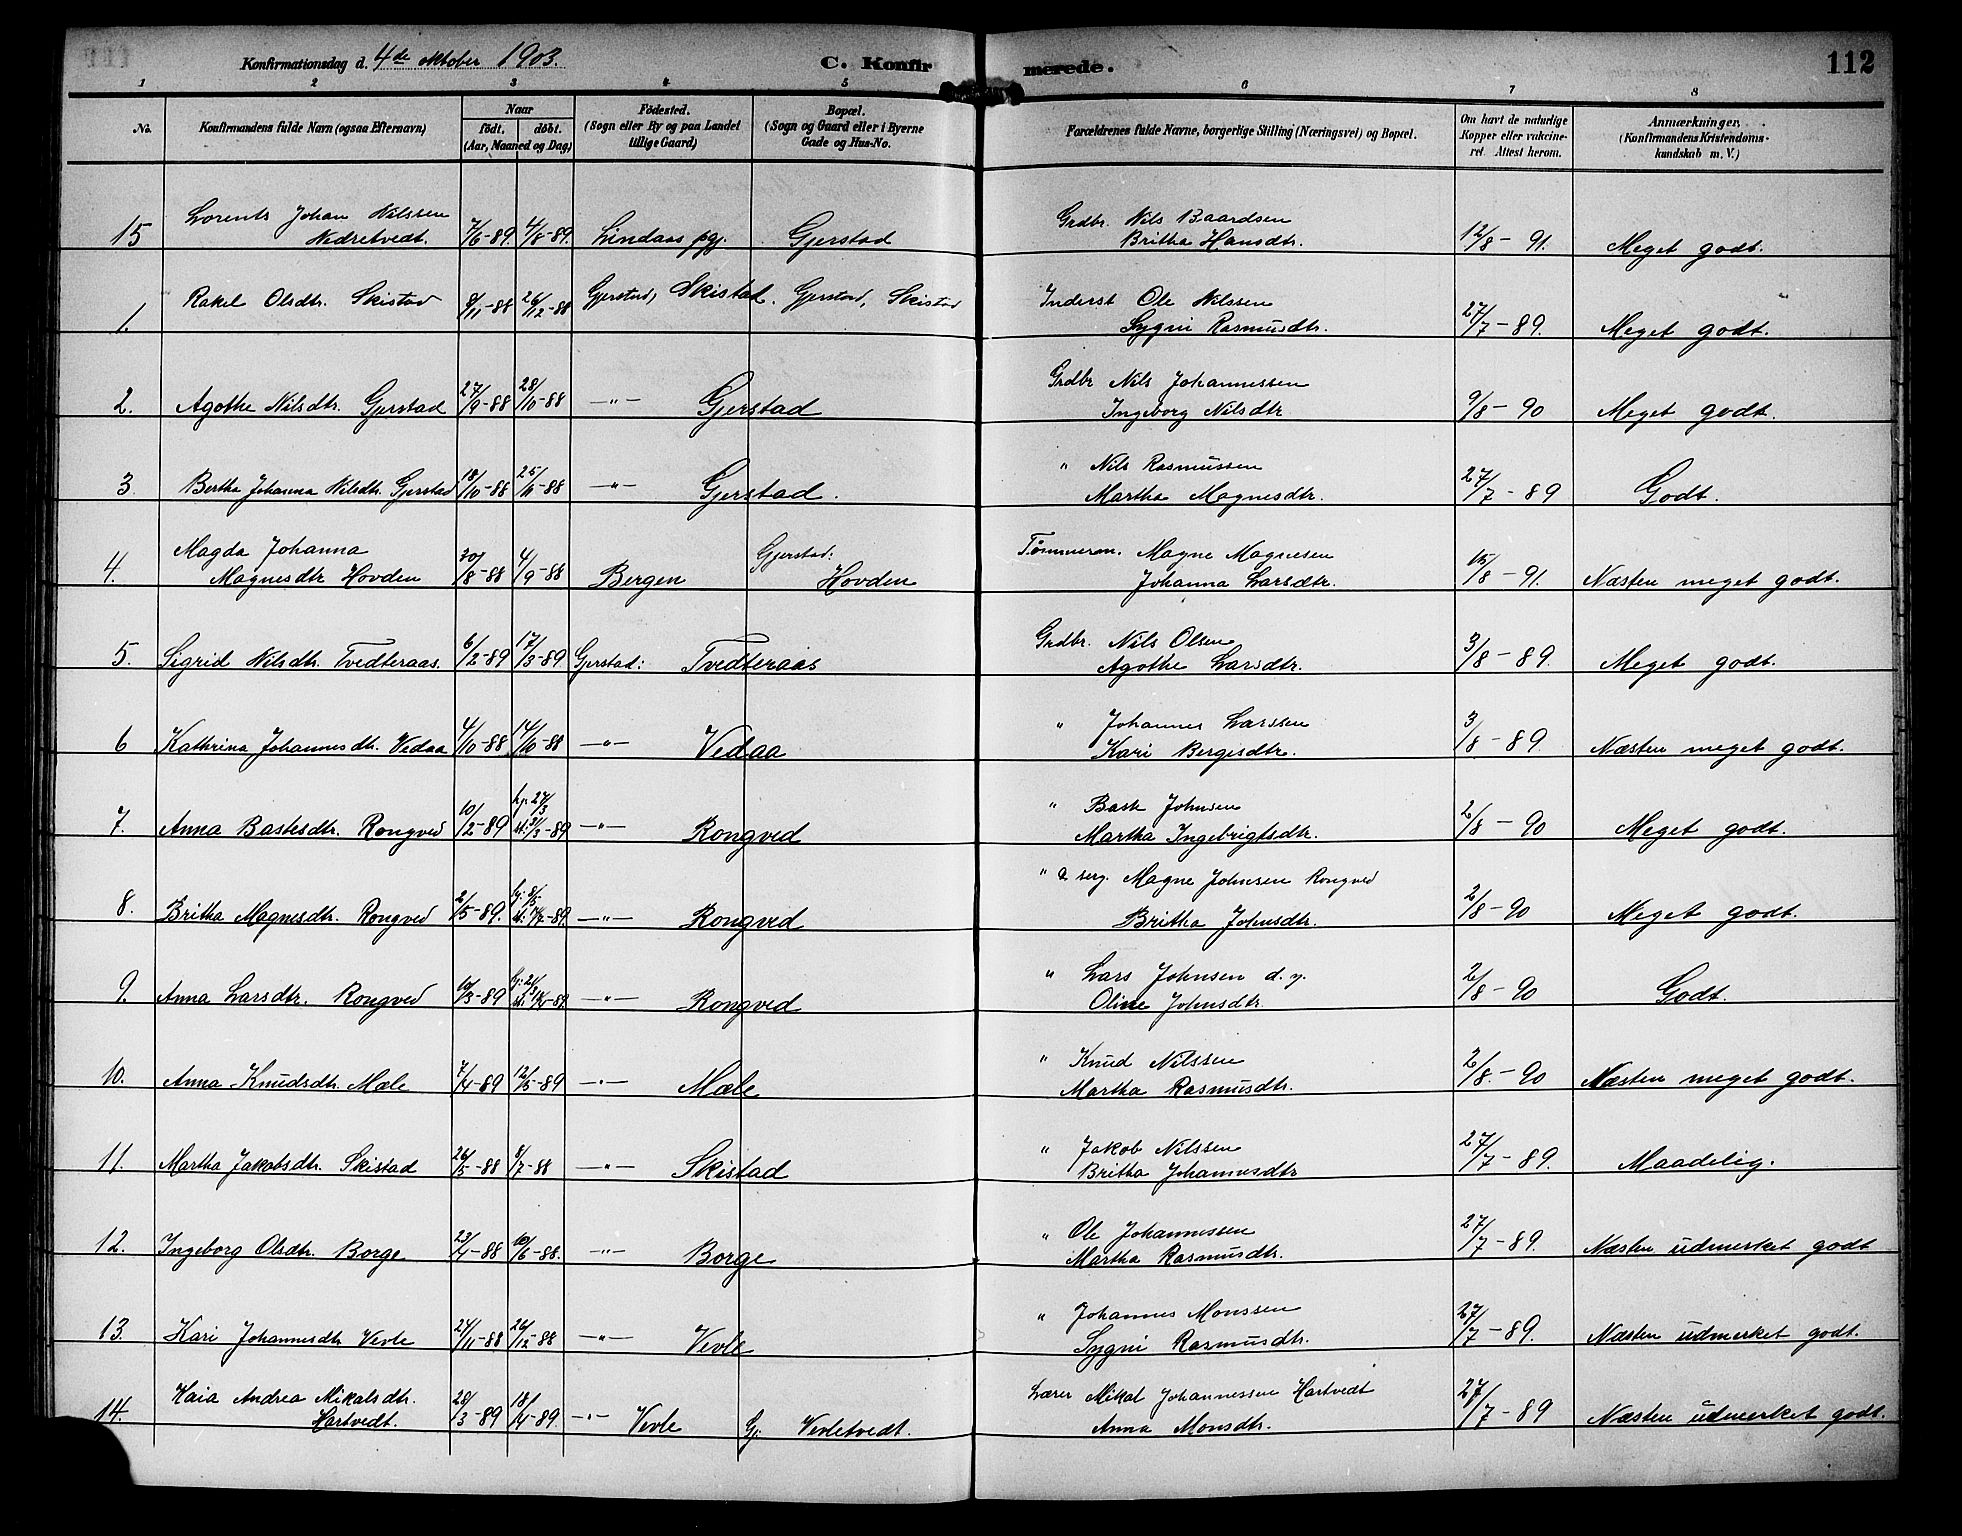 Konfirmationsdag d. 4de oktober 1903.
C. Konfirmerede.
112
1 2 3 4 5 6 7 8
No.
Konfirmandens fulde Navn (ogsaa Efternavn)
Naar
født. døbt.
(Aar, Maaned og Dag)
Fødested.
(Sogn eller By og paa Landet
tillige Gaard)
Bopæl.
(Sogn og Gaard eller i Byerne
Gade og Hus-No.
Forældrenes fulde Navne, borgerlige Stilling (Næringsvei) og Bopæl.
Om havt de naturlige
Kopper eller vakcine-
ret. Attest herom.
Anmærkninger.
(Konfirmandens Kristendoms-
kundskab m. V.)
Lorents Johan Nilssen Grdbr. Nils Baardsen
15 Nedretvedt. 7/6-89. 4/8-89. Lindaas pgj. Gjerstad Britha Hansdtr. 12/8-91. Meget godt.
Rakel Olsdtr. Skistad 8/11-88 26/12-88 Gjerstad, Skistad. Gjerstad, Skistad Inderst Ole Nilssen
1. Sygni Rasmusdtr. 27/7-89. Meget godt.
Grdbr Nils Johannessen
2. Agothe Nilsdtr. Gjerstad 27/9-88 28/10-88 —"— Gjerstad Ingeborg Nilsdtr 9/8-90 Meget godt.
" Nils Rasmussen
3. Bertha Johanna Nilsdtr. Gjerstad 18/10-88 25/11-88 —"— Gjerstad. Martha Magnesdtr. 27/7-89 Godt.
Magda Johanna Gjerstad: Tømmerm. Magne Magnesen
4. Magnesdtr Hovden 30/8-88 4/9-88 Bergen Hovden Johanna Larsdtr. 15/8-91. Næsten meget godt.
Grdbr. Nils Olsen
5. Sigrid Nilsdtr. Tvedteraas. 6/2-89 17/3-89. Gjerstad: Tvedteraas Agothe Larsdtr. 3/8-89. Meget godt.
" Johannes Larssen
6 Kathrina Johannesdtr. Vedaa 4/10-88 14/10-88 —"— Vedaa Kari Bergesdtr. 3/8-89. Næsten meget godt.
" Baste Johnsen
7. Anna Bastesdtr. Rongved 10/2-89 27/3 31/3-89 —"— Rongved Martha Ingebrigtsdtr. 2/8-90 Meget godt.
" & serg. Magne Johnsen Rongved
8. Britha Magnesdtr. Rongved 2/5-89. 8/5 -89. —"— Rongved Britha Johnsdtr. 2/8-90 Meget godt.
" Lars Johnsen d. y.
9. Anna Larsdtr. Rongved 10/3-89 -89. —"— Rongved Oline Johnsdtr. 2/8-90 Godt.
" Knud Nilssen
10. Anna Knudsdtr. Mæle 7/4-89 12/5-89 —"— Mæle Martha Rasmusdtr. 2/8-90 Næsten meget godt.
" Jakob Nilssen
11. Martha Jakobsdtr. Skistad 26/5-88 8/7-88 —"— Skistad Britha Johannesdtr 27/7-89. Maadelig.
" Ole Johannessen
12. Ingeborg Olsdtr. Borge 23/4-88 10/6-88. —"— Borge Martha Rasmusdtr. 27/7-89. Næsten udmerket godt
" Johannes Monssen
13. Kari Johannesdtr Vevle 24/11-88 26/12-88 —"— Vevle Sygni Rasmusdtr. 27/7-89. Næsten udmerket godt.
Kaia Andrea Mikalsdtr. Lærer Mikal Johannessen Hartvedt
14. Hartvedt. 28/3-89 18/4-89. —"— Vevle Gj: Vevletvedt. Anna Monsdtr. 27/7-89 Næsten udmerket godt.